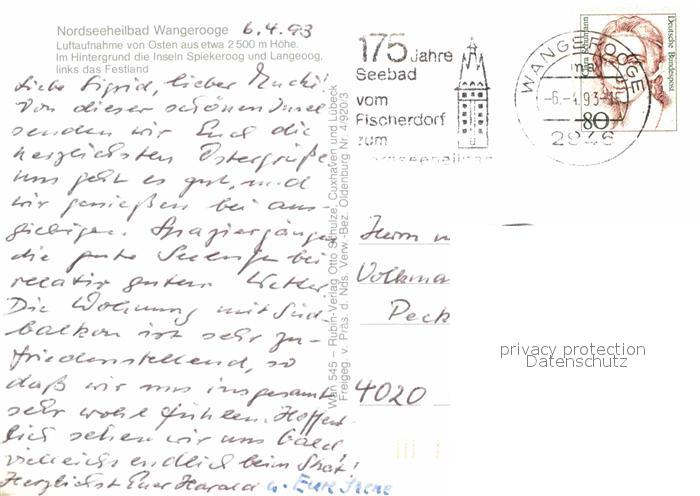 Nordseeheilbad Wangerooge 6.4.93
Luftaufnahme von Osten aus etwa 2500 m Höhe.
Im Hintergrund die Inseln Spiekeroog und Langeoog,
links das Festland
Liebe Sigrid, lieber Mucki!
Von dieser schönen Insel
senden wir Euch die
herzlichsten Ostergrüße
uns geht es gut, und
wir genießen bei aus-
giebigen Spaziergängen
die gute Seeluft bei
relativ gutem Wetter.
Die Wohnung mit Süd-
balkon ist sehr zu-
friedenstellend, so
daß wir uns insgesamt
sehr wohl fühlen. Hoffent-
lich sehen wir uns bald
vielleicht endlich beim Skat!
Herzlichst Euer Harald u. Eure Irene
Wan 545 – Rubin-Verlag Otto Schulze, Cuxhaven und Lübeck
Freigeg. v. Präs. d. Nds. Verw.-Bez. Oldenburg Nr. 4/920/3
175 Jahre
Seebad
vom
Fischerdorf
zum
Nordseeheilbad
WANGEROOGE
-6.-4.93-
2946
Deutsche Bundespost
80
Herrn
Volkma
Peck
4020
privacy protection
Datenschutz